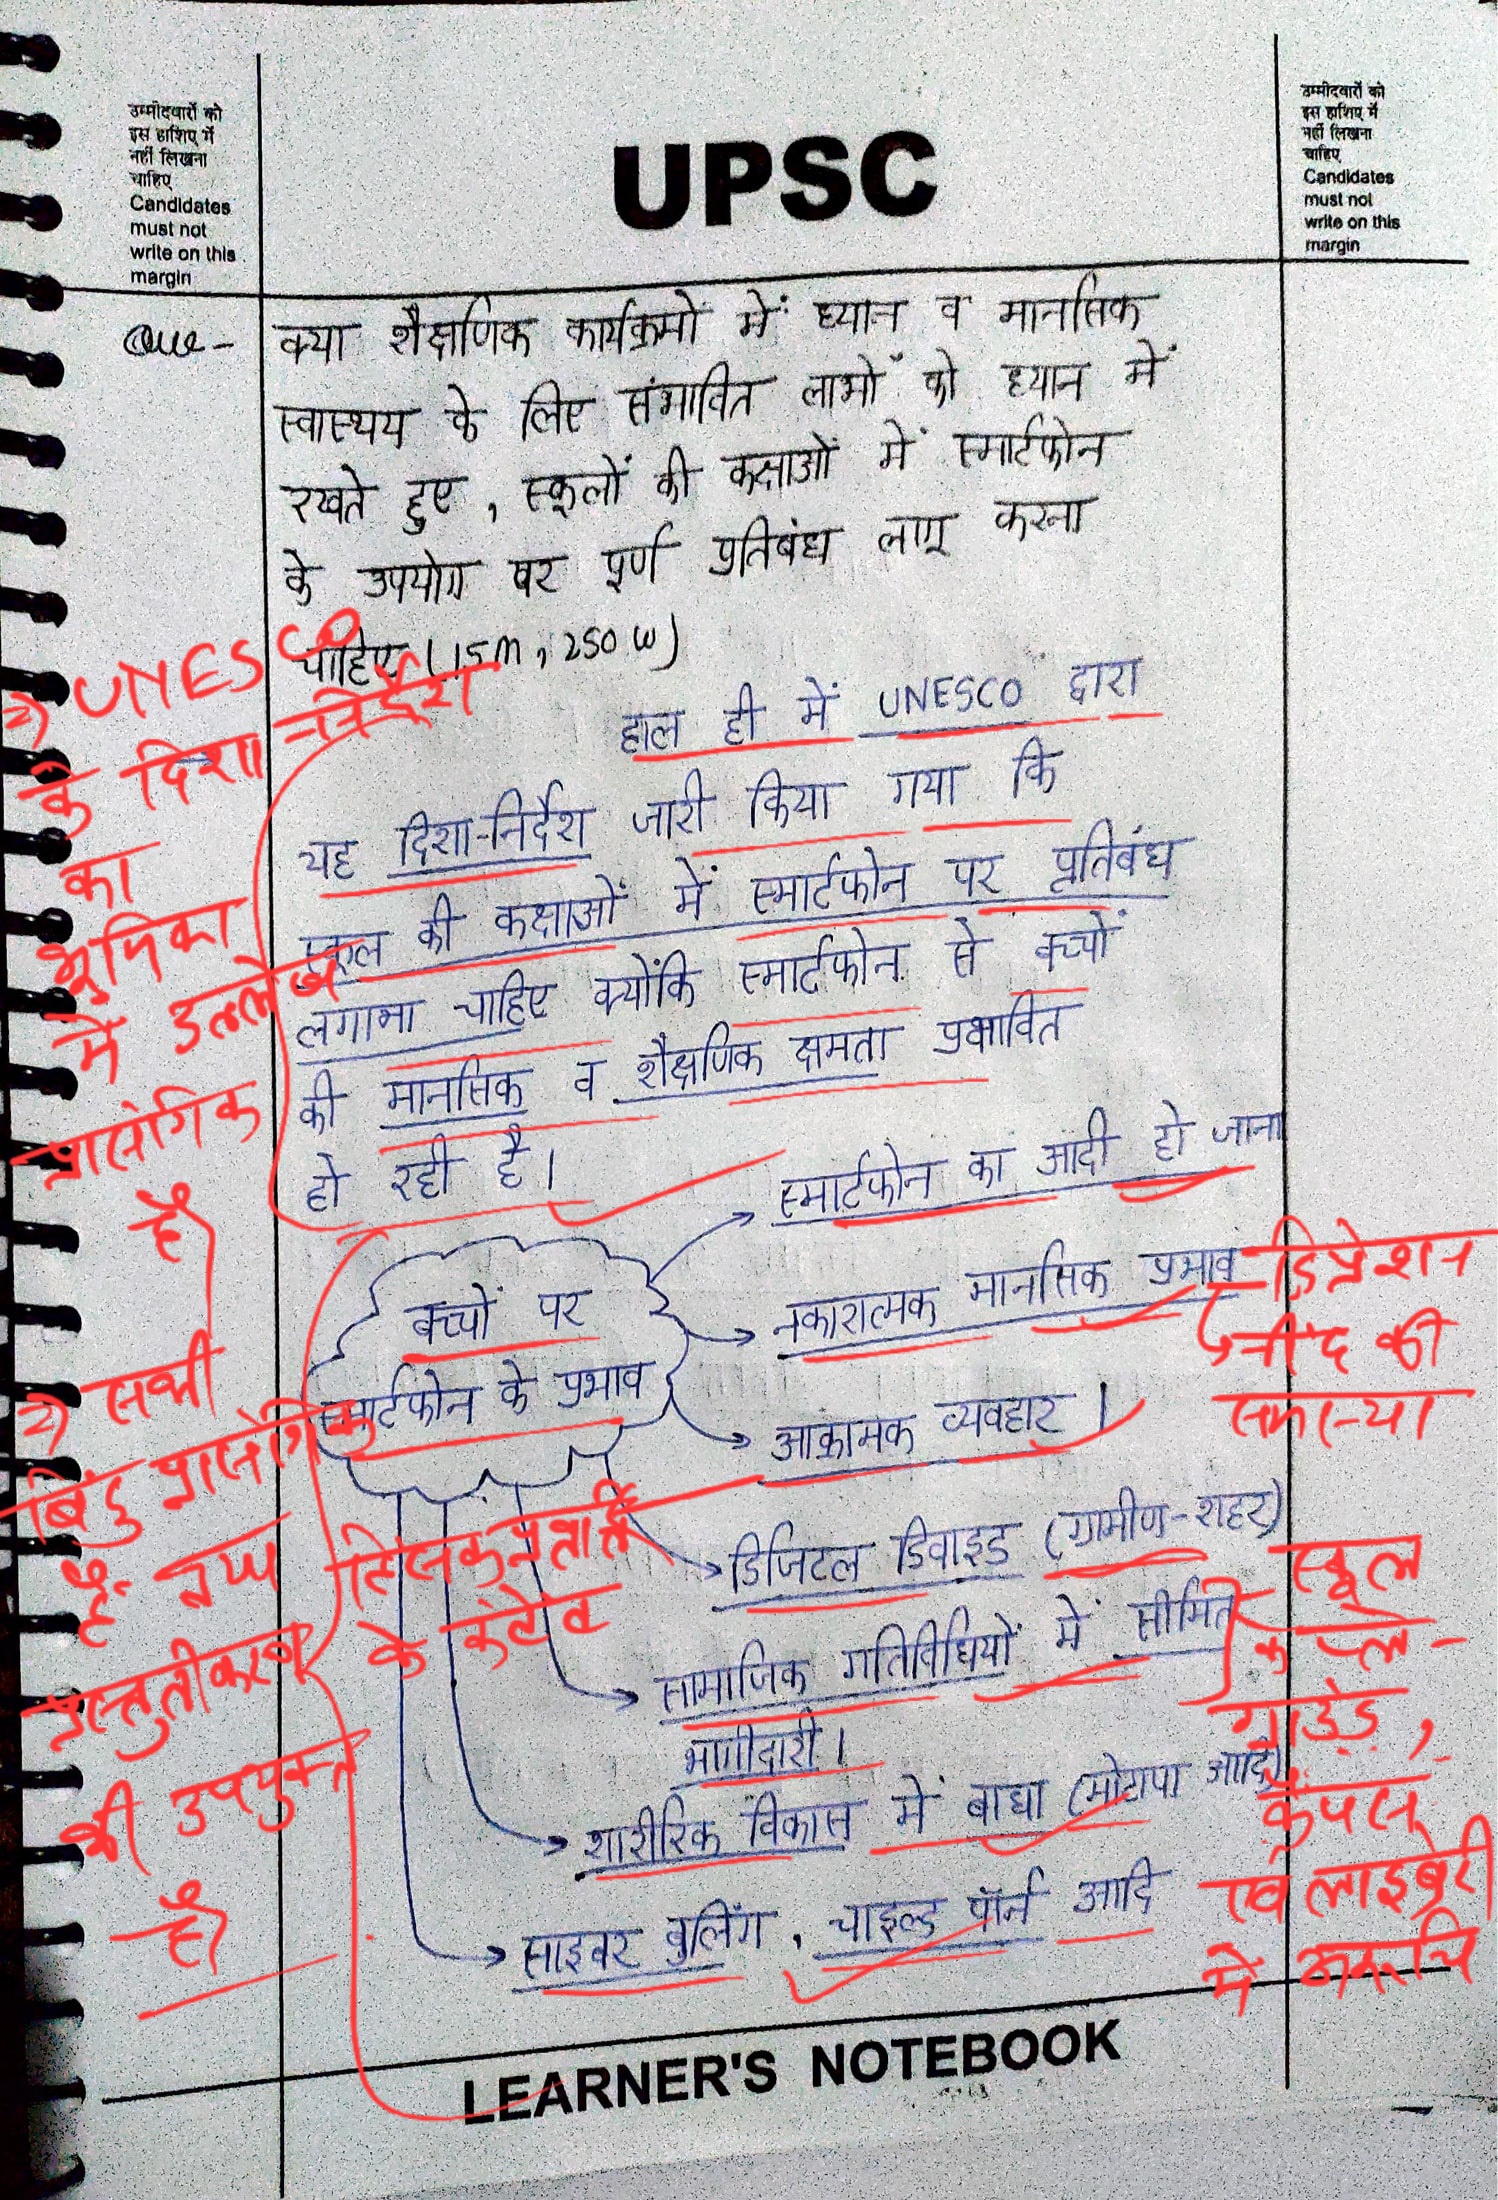 उम्मीदवारों को
इस हाशिए में
नहीं लिखना
चाहिए
Candidates
must not
write on this
margin
UPSC
उम्मीदवारों को
इस हाशिए में
नहीं लिखना
चाहिए
Candidates
must not
write on this
margin
Que - क्या शैक्षणिक कार्यक्रमों में ध्यान व मानसिक
स्वास्थय के लिए संभावित लाभों को ध्यान में
रखते हुए, स्कूलों की कक्षाओं में स्मार्टफोन
के उपयोग पर पूर्ण प्रतिबंध लागू करना
चाहिए (15m, 250W)
UNESCO
के दिशा-निर्देश
का
भूमिका
में उल्लेख
प्रासंगिक
है।
हाल ही में UNESCO द्वारा
यह दिशा-निर्देश जारी किया गया कि
स्कूल की कक्षाओं में स्मार्टफोन पर प्रतिबंध
लगाना चाहिए क्योंकि स्मार्टफोन से बच्चों
की मानसिक व शैक्षणिक क्षमता प्रभावित
हो रही है।
बच्चों पर
स्मार्टफोन के प्रभाव
स्मार्टफोन का आदी हो जाना
नकारात्मक मानसिक प्रभाव
डिप्रेशन
नींद की
समस्या
आक्रामक व्यवहार।
डिजिटल डिवाइड (ग्रामीण-शहर)
सामाजिक गतिविधियों में सीमित
भागीदारी।
स्कूल
के प्ले-
ग्राउंड,
कैंपस
एवं लाइब्रेरी
में अरूचि
शारीरिक विकास में बाधा (मोटापा आदि)
साइबर बुलिंग, चाइल्ड पॉर्न आदि
सभी
बिंदु प्रासंगिक
है तथा
प्रस्तुतीकरण
भी उपयुक्त
है।
के कंटेंट
LEARNER'S NOTEBOOK